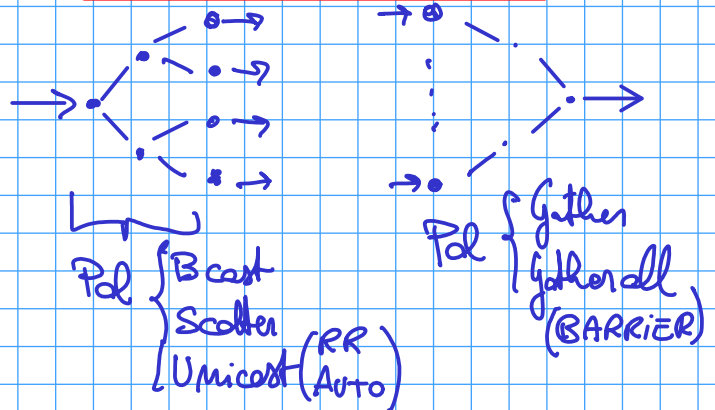 Pol
Bcast
Scatter
Unicast (RR
AUTO)
Pol
Gather
Gatherall
(BARRIER)